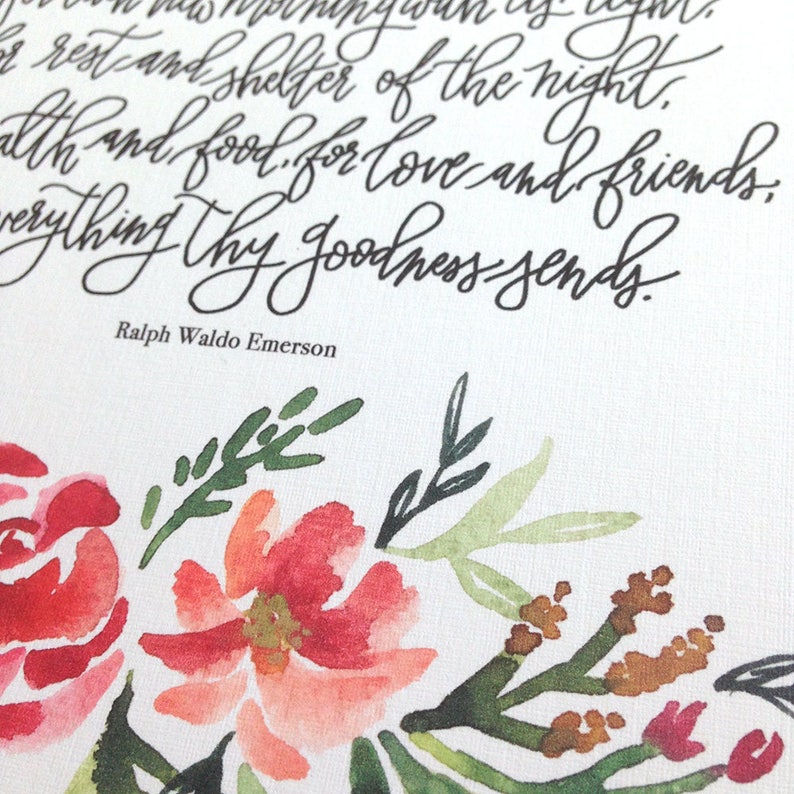 new morning with its light,
for rest and shelter of the night,
alth and food, for love and friends;
verything thy goodness sends.
Ralph Waldo Emerson